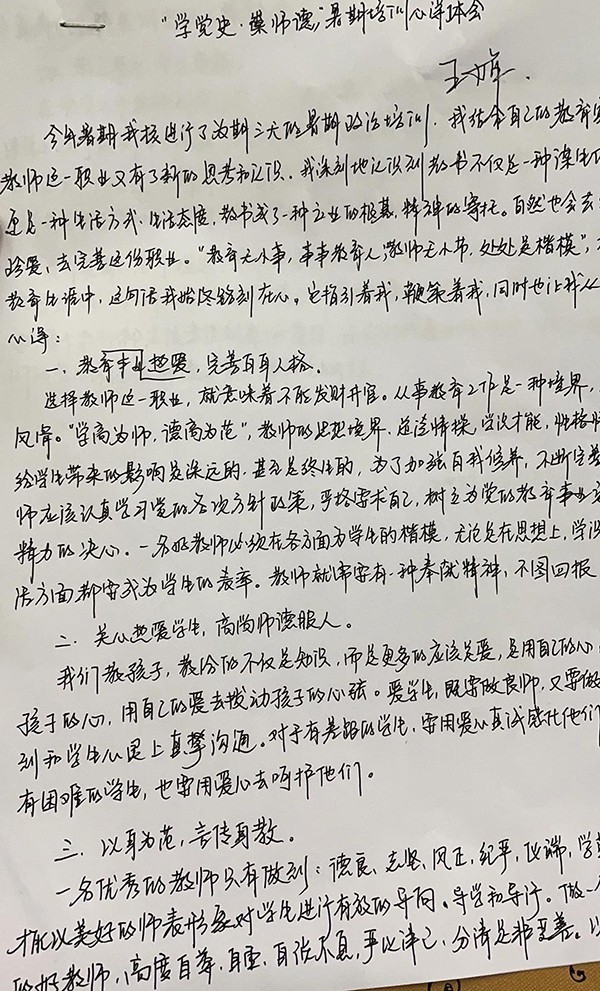 “学党史·蘖师德”暑期培训心得体会
王
今年暑期我校进行了为期三天的暑期政治培训，我结合自己的教育
教师这一职业又有了新的思考和认识，我深刻地认识到教书不仅是一种谋生
还是一种生活方式、生活态度，教书成了一种立业的根基，精神的寄托。自然也会去
珍爱，去完善这份职业。“教育无小事，事事教育人，教师无小节，处处是楷模”，
教育生涯中，这句话我始终铭刻在心。它指引着我，鞭策着我，同时也让我从
心得：
一、教育事业热爱，完善自身人格。
选择教师这一职业，就意味着不能发财升官。从事教育工作是一种境界，
风骨。“学高为师，德高为范”，教师的思想境界、道德情操、学识才能，性格
给学生带来的影响是深远的，甚至是终生的，为了加强自我修养，不断完善
师应该认真学习党的各项方针政策，严格要求自己，树立为党的教育事业
精力的决心。一名好教师必须在各方面为学生的楷模，无论是在思想上，学识
法方面都要成为学生的表率。教师就需要有一种奉献精神，不图回报
二、关心热爱学生，高尚师德服人。
我们教孩子，教给的不仅是知识，而是更多的应该是爱，是用自己的心
孩子的心，用自己的爱去拨动孩子的心弦。爱学生，既要做良师，又要做
到和学生心灵上真挚沟通。对于有差错的学生，要用爱心真诚感化他们
有困难的学生，也要用爱心去呵护他们。
三、以身为范，言传身教。
一名优秀的教师只有做到：德良，志坚，风正，纪严，仪端，学
才能以美好的师表形象对学生进行有效的导向、导学和导行。做一
的好教师，高度自尊、自重、自强不息，严以律己，分清是非美善。以